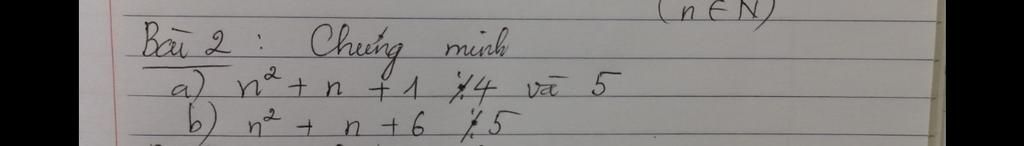 (n ∈ N)
Bài 2 : Chứng minh
a) n² + n + 1 ⋮̸ 4 và 5
b) n² + n + 6 ⋮̸ 5